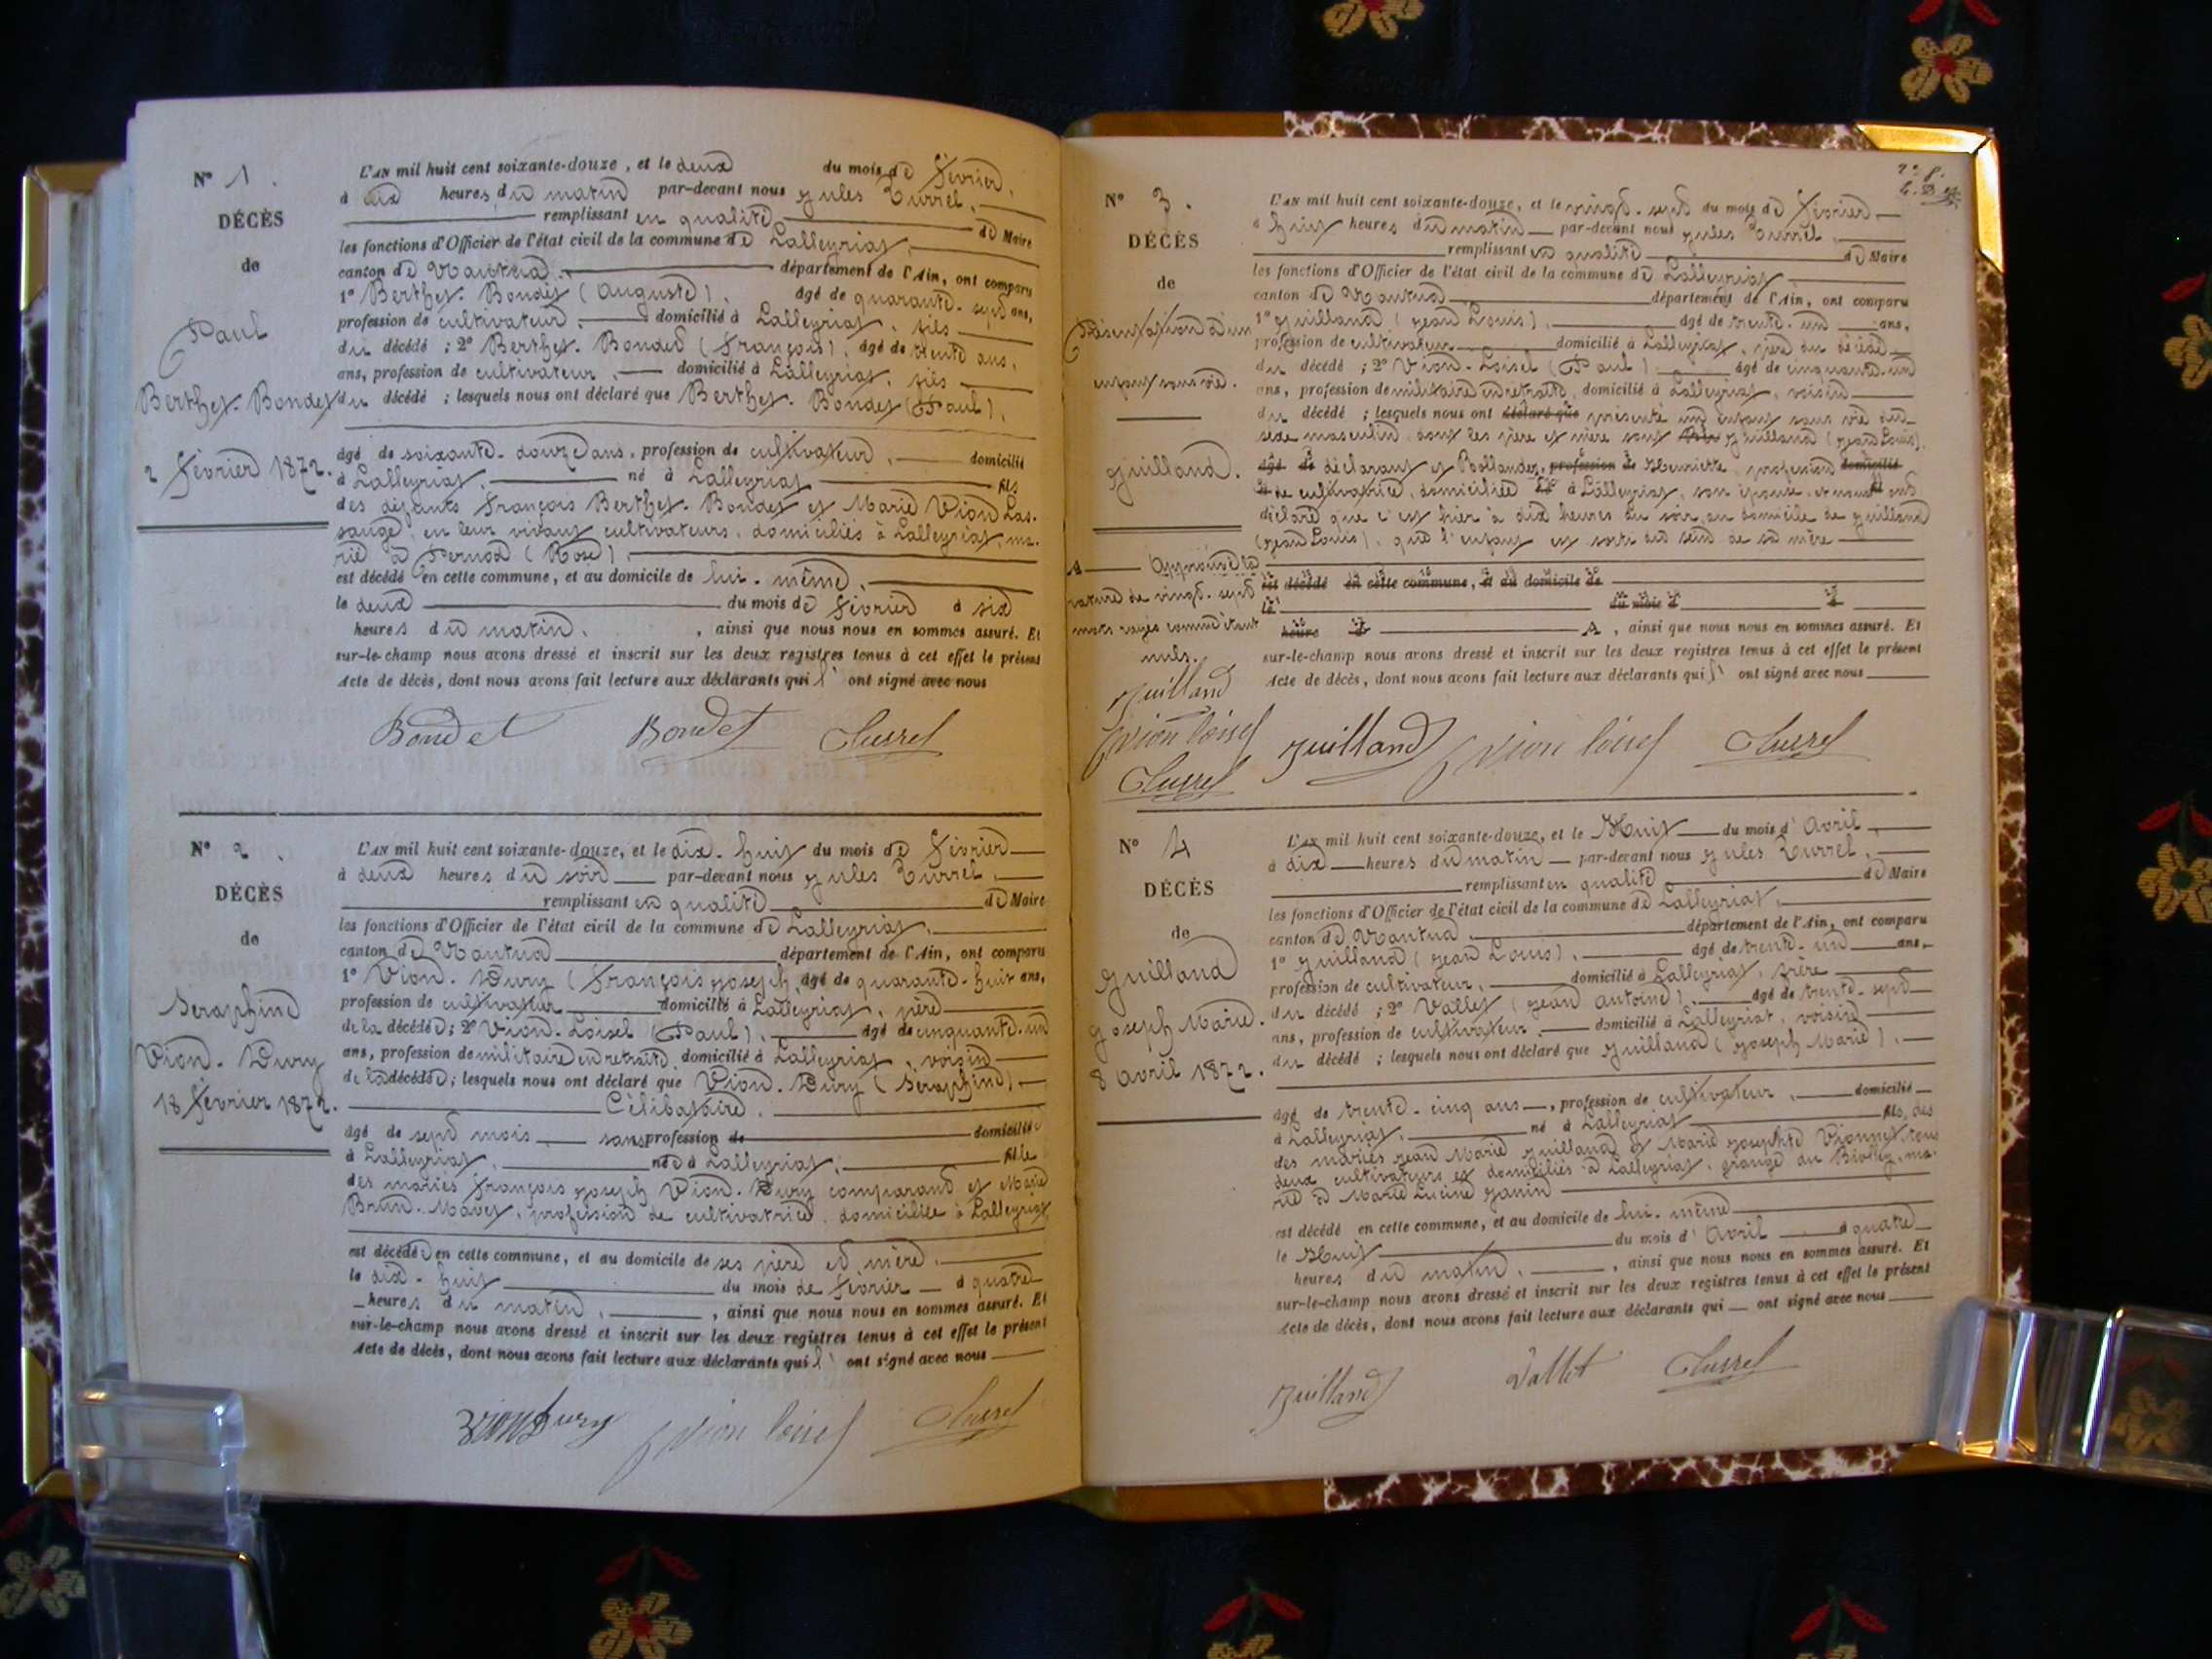 N° 1.
DÉCÈS
de
Paul
Berthet-Bondet
2 février 1872.
L'AN mil huit cent soixante-douze, et le deux du mois de février,
à dix heures du matin par-devant nous Jules Turrel,
remplissant en qualité de Maire
les fonctions d'Officier de l'état civil de la commune de Lalleyriat,
canton de Nantua département de l'Ain, ont comparu
1° Berthet-Bondet (Auguste), âgé de quarante-sept ans,
profession de cultivateur, domicilié à Lalleyriat, fils
du décédé ; 2° Berthet-Bondet (François), âgé de trente ans,
ans, profession de cultivateur, domicilié à Lalleyriat, fils
du décédé ; lesquels nous ont déclaré que Berthet-Bondet (Paul),
âgé de soixante-douze ans, profession de cultivateur, domicilié
à Lalleyriat, né à Lalleyriat fils
des défunts François Berthet-Bondet et Marie Vion Las-
sauge, en leur vivant cultivateurs, domiciliés à Lalleyriat, ma-
rié à Pernod (Rose),
est décédé en cette commune, et au domicile de lui-même,
le deux du mois de février à six
heures du matin, , ainsi que nous nous en sommes assuré. Et
sur-le-champ nous avons dressé et inscrit sur les deux registres tenus à cet effet le présent
Acte de décès, dont nous avons fait lecture aux déclarants qui l' ont signé avec nous
Bondet Bondet Turrel
N° 2.
DÉCÈS
de
Seraphine
Vion-Dury
18 février 1872.
L'AN mil huit cent soixante-douze, et le dix-huit du mois de février
à deux heures du soir par-devant nous Jules Turrel,
remplissant en qualité de Maire
les fonctions d'Officier de l'état civil de la commune de Lalleyriat,
canton de Nantua département de l'Ain, ont comparu
1° Vion-Dury (François Joseph, âgé de quarante-huit ans,
profession de cultivateur domicilié à Lalleyriat, père
de la décédée ; 2° Vion-Loisel (Paul), âgé de cinquante-un
ans, profession de militaire en retraite, domicilié à Lalleyriat, voisin
de la décédée ; lesquels nous ont déclaré que Vion-Dury (Séraphine)
Célibataire,
âgé de sept mois, sans profession de domicilié
à Lalleyriat, née à Lalleyriat, fille
des mariés François Joseph Vion-Dury comparant et Marie
Brun-Mavet, profession de cultivatrice, domiciliée à Lalleyriat
est décédée en cette commune, et au domicile de ses père et mère,
le dix-huit du mois de février à quatre
heures du matin, , ainsi que nous nous en sommes assuré. Et
sur-le-champ nous avons dressé et inscrit sur les deux registres tenus à cet effet le présent
Acte de décès, dont nous avons fait lecture aux déclarants qui l' ont signé avec nous
Vion Dury Vion loisel Turrel
N° 3.
DÉCÈS
de
Présentation d'un
enfant sans vie.
Guilland.
A Approuvé la
rature de vingt-sept
mots rayés comme étant
nuls.
Guilland
Vion loisel
Turrel
L'AN mil huit cent soixante-douze, et le vingt-sept du mois de février
à huit heures du matin par-devant nous Jules Turrel,
remplissant en qualité de Maire
les fonctions d'Officier de l'état civil de la commune de Lalleyriat
canton de Nantua département de l'Ain, ont comparu
1° Guilland (Jean Louis), âgé de trente-un ans,
profession de cultivateur domicilié à Lalleyriat, père du décédé
du décédé ; 2° Vion-Loisel (Paul) âgé de cinquante-un
ans, profession de militaire en retraite, domicilié à Lalleyriat, voisin
du décédé ; lesquels nous ont déclaré que présenté un enfant sans vie du
sexe masculin, dont les père et mère sont Guilland (Jean Louis),
âgé de déclarant et Rollandez, profession de Henriette, profession domicilié
de cultivatrice, domiciliée à Lalleyriat, son épouse, et nous ont
déclaré que c'est hier à dix heures du soir, au domicile de Guilland
(Jean Louis), que l'enfant est sorti du sein de sa mère
est décédé en cette commune, et au domicile de
le du mois d à
heure d A , ainsi que nous nous en sommes assuré. Et
sur-le-champ nous avons dressé et inscrit sur les deux registres tenus à cet effet le présent
Acte de décès, dont nous avons fait lecture aux déclarants qui l' ont signé avec nous
Guilland Vion loisel Turrel
N° 4
DÉCÈS
de
Guilland
Joseph Marie.
8 avril 1872.
L'AN mil huit cent soixante-douze, et le Huit du mois d'Avril,
à dix heures du matin par-devant nous Jules Turrel,
remplissant en qualité de Maire
les fonctions d'Officier de l'état civil de la commune de Lalleyriat,
canton de Nantua, département de l'Ain, ont comparu
1° Guilland (Jean Louis), âgé de trente-un ans,
profession de cultivateur, domicilié à Lalleyriat, frère
du décédé ; 2° Vallet (Jean Antoine), âgé de trente-sept
ans, profession de cultivateur domicilié à Lalleyriat, voisin
du décédé ; lesquels nous ont déclaré que Guilland (Joseph Marie),
âgé de trente-cinq ans, profession de cultivateur, domicilié
à Lalleyriat, né à Lalleyriat fils, des
des mariés Jean Marie Guilland et Marie Josephte Vionnet, tous
deux cultivateurs et domiciliés à Lalleyriat, grange du ma-
rié à Marie Lucine Janin
est décédé en cette commune, et au domicile de lui-même
le Huit du mois d'Avril à quatre
heures du matin, , ainsi que nous nous en sommes assuré. Et
sur-le-champ nous avons dressé et inscrit sur les deux registres tenus à cet effet le présent
Acte de décès, dont nous avons fait lecture aux déclarants qui ont signé avec nous
Guilland Vallet Turrel